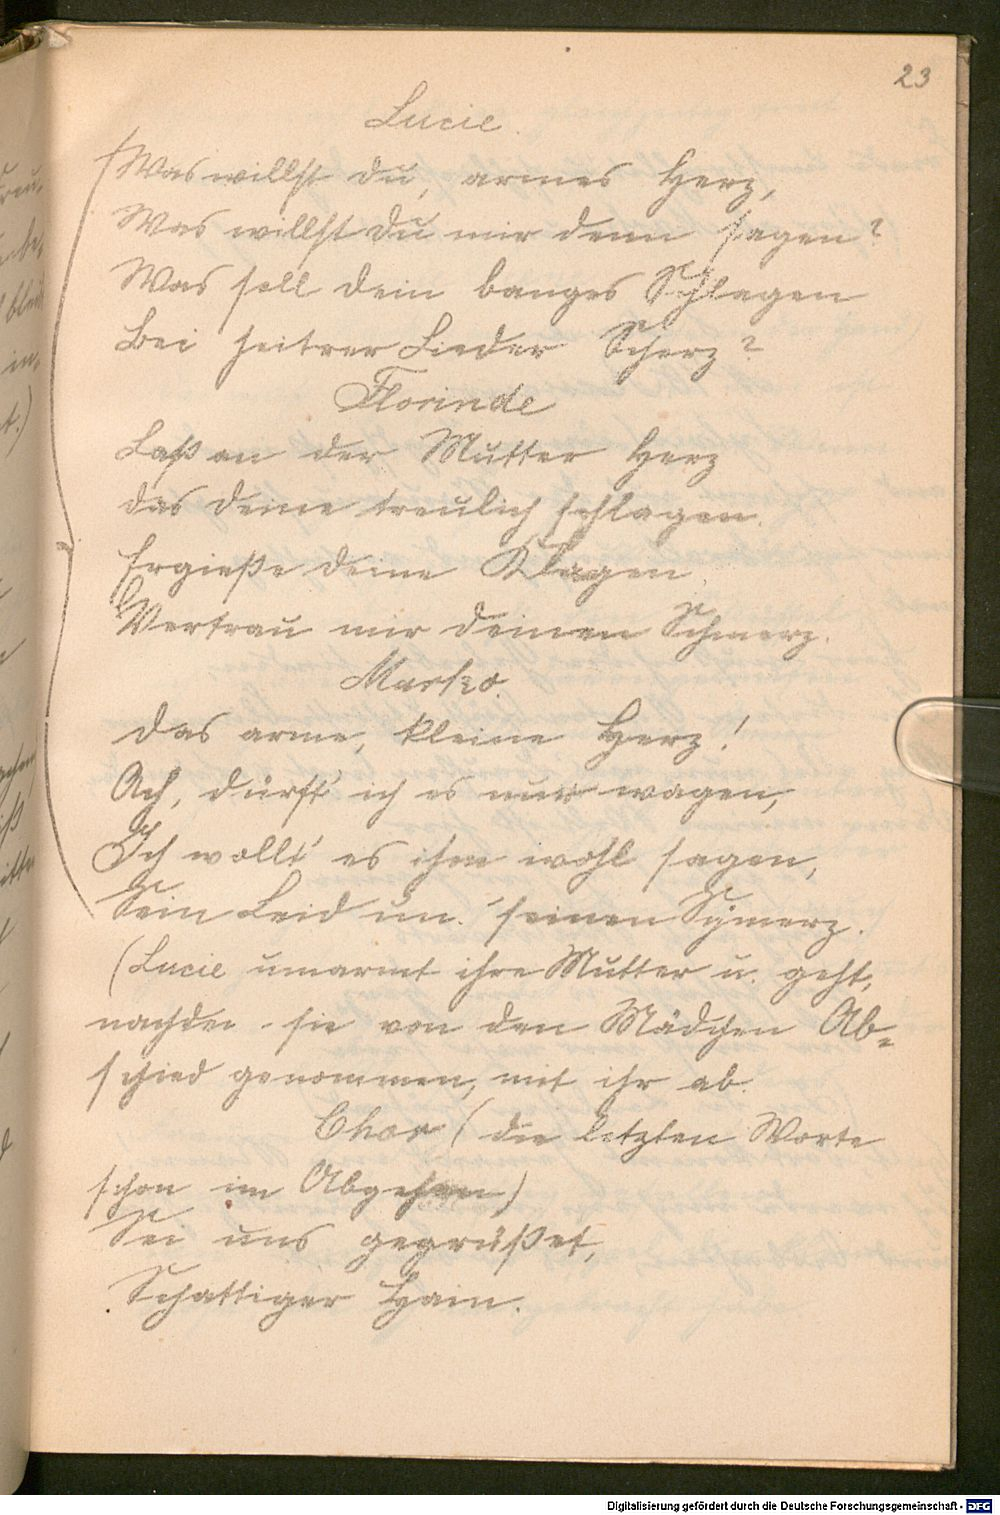 23
Lucie.
Was willst du, armes Herz,
Was willst du mir denn sagen?
Was soll dein banges Schlagen
Bei heitrer Lieder Scherz?
Florinde
Laß an der Mutter Herz
das deine treulich schlagen.
Ergieße deine Klagen.
Vertrau mir deinen Schmerz.
Marko.
Das arme, kleine Herz!
Ach, dürft' ich es nur wagen,
Ich wollt' es ihm wohl sagen,
Sein Leid un. seinen Schmerz.
(Lucie umarmt ihre Mutter u. geht,
nachdem sie von den Mädchen Ab=
schied genommen, mit ihr ab.
Chor (die letzten Worte
schon im Abgehen)
Sei uns gegrüßet,
Schattiger Hain.
Digitalisierung gefördert durch die Deutsche Forschungsgemeinschaft - DFG